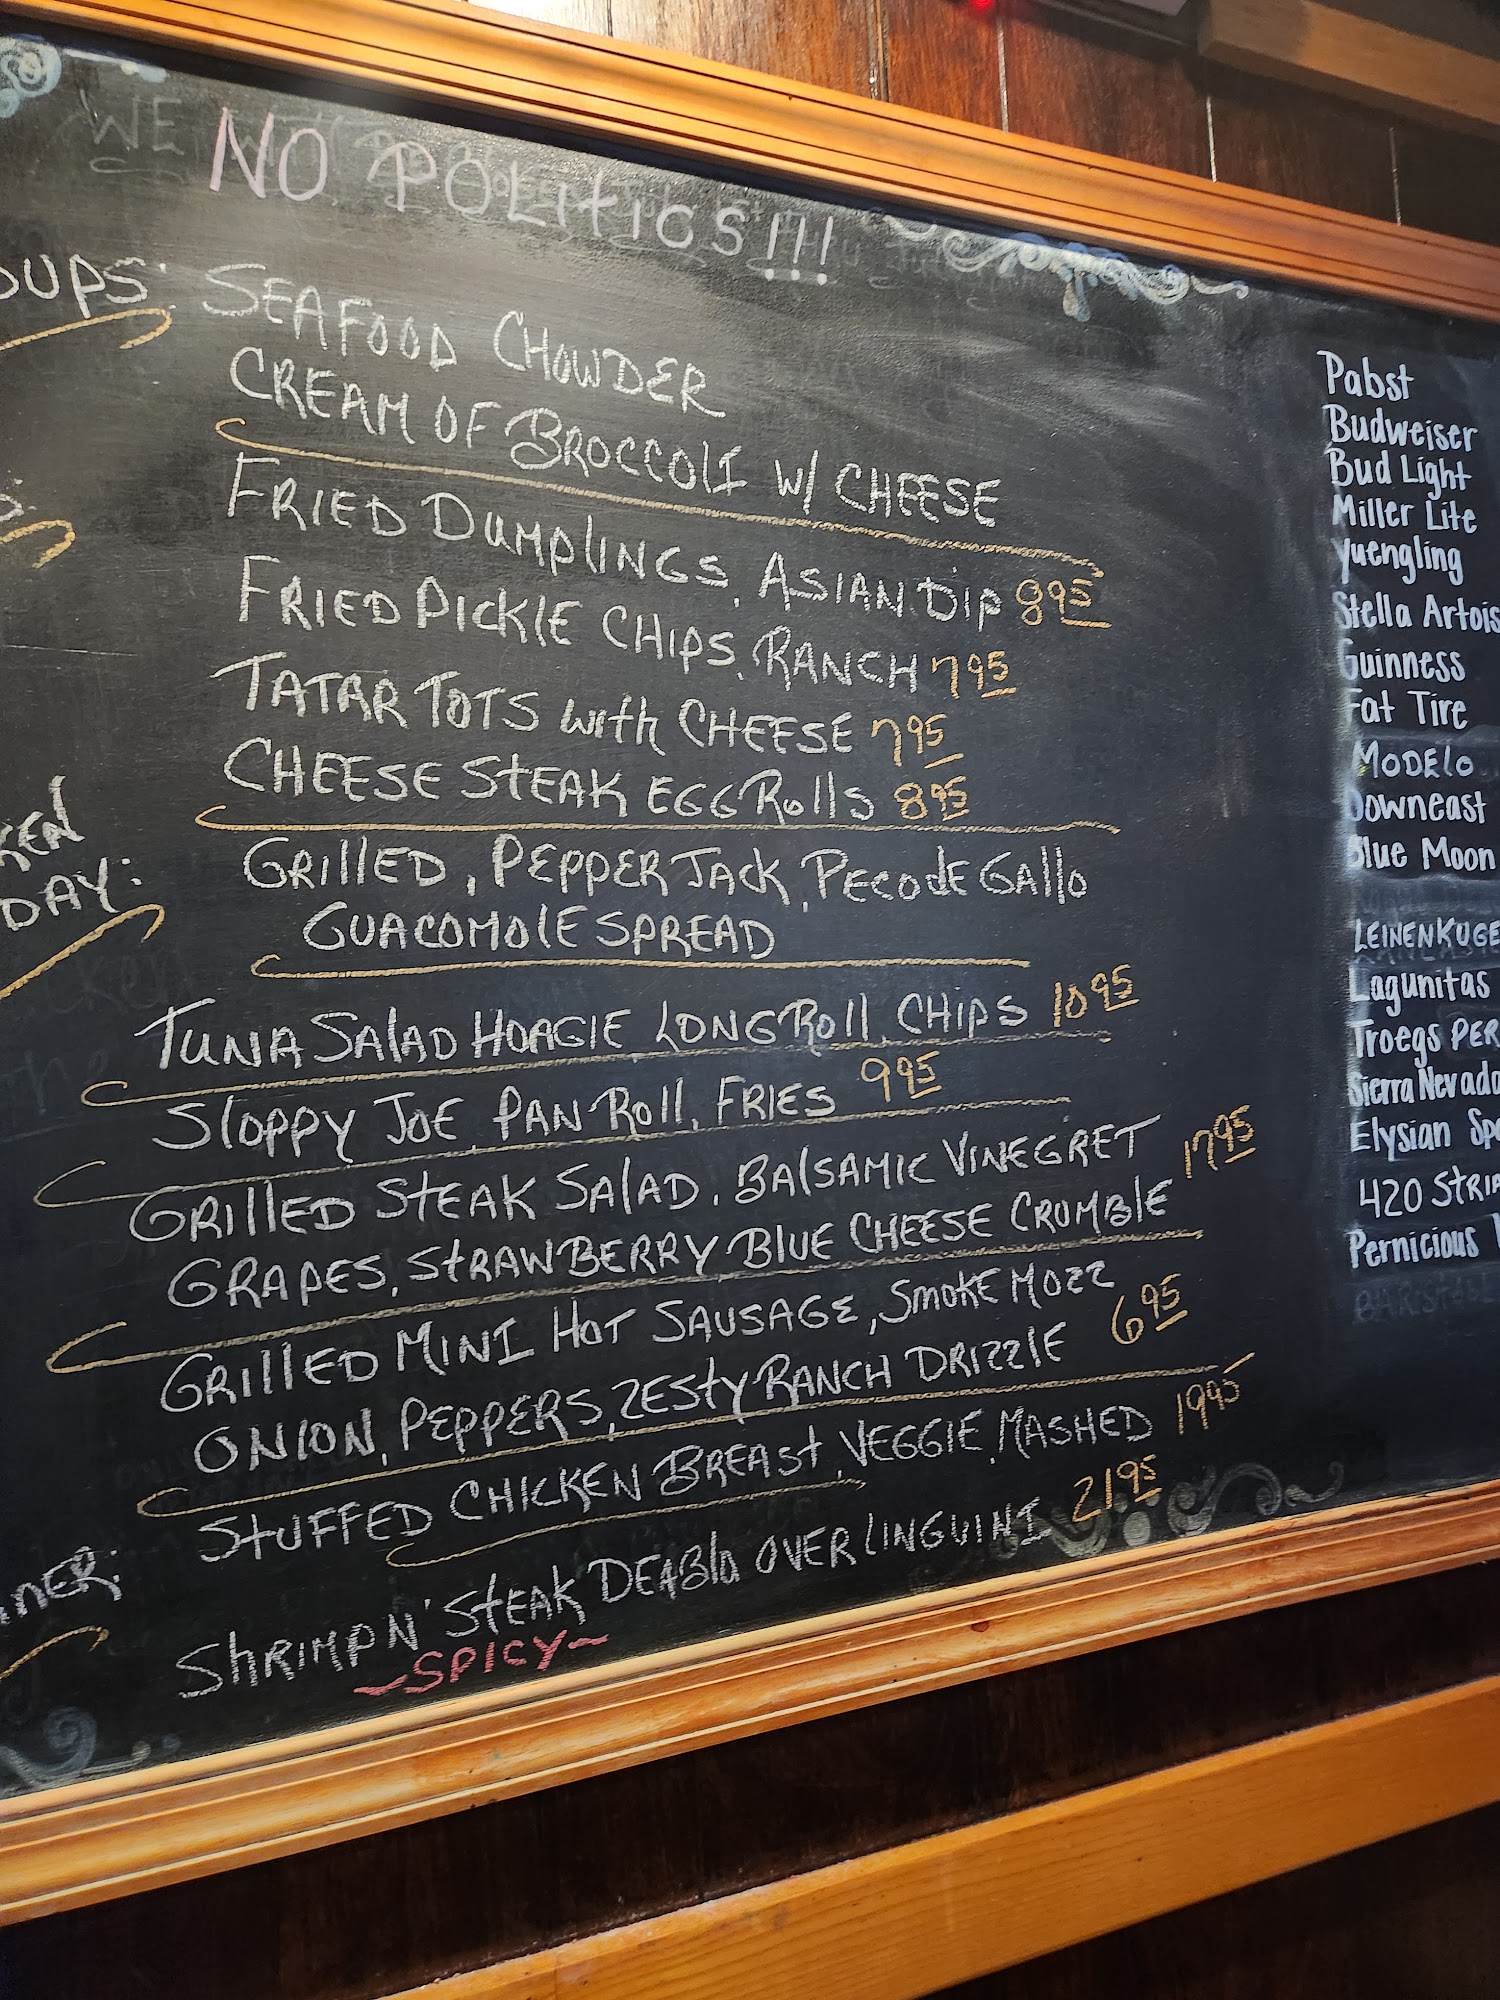 NO POLITICS!!!
OUPS: SEAFOOD CHOWDER
CREAM OF BROCCOLI W/ CHEESE
S:
FRIED DUMPLINGS, ASIAN DIP 8 95
FRIED PICKLE CHIPS, RANCH 7 95
TATAR TOTS with CHEESE 7 95
CHEESE STEAK EGG ROLLS 8 95
KEN
DAY:
GRILLED, PEPPER JACK, PECO de GALLO
GUACOMOLE SPREAD
TUNA SALAD HOAGIE, LONG ROLL, CHIPS 10 95
SLOPPY JOE, PAN ROLL, FRIES 9 95
GRILLED STEAK SALAD, BALSAMIC VINEGRET
GRAPES, STRAWBERRY, BLUE CHEESE CRUMBLE 17 95
GRILLED MINI HOT SAUSAGE, SMOKE MOZZ
ONION, PEPPERS, ZESTY RANCH DRIZZLE 6 95
NNER:
STUFFED CHICKEN BREAST, VEGGIE, MASHED 19 95
SHRIMP N' STEAK DEABLO OVER LINGUINI 21 95
~SPICY~
Pabst
Budweiser
Bud Light
Miller Lite
Yuengling
Stella Artois
Guinness
Fat Tire
MODELO
Downeast
Blue Moon
LEINENKUGE
Lagunitas
Troegs PER
Sierra Nevada
Elysian Spa
420 STRA
Pernicious